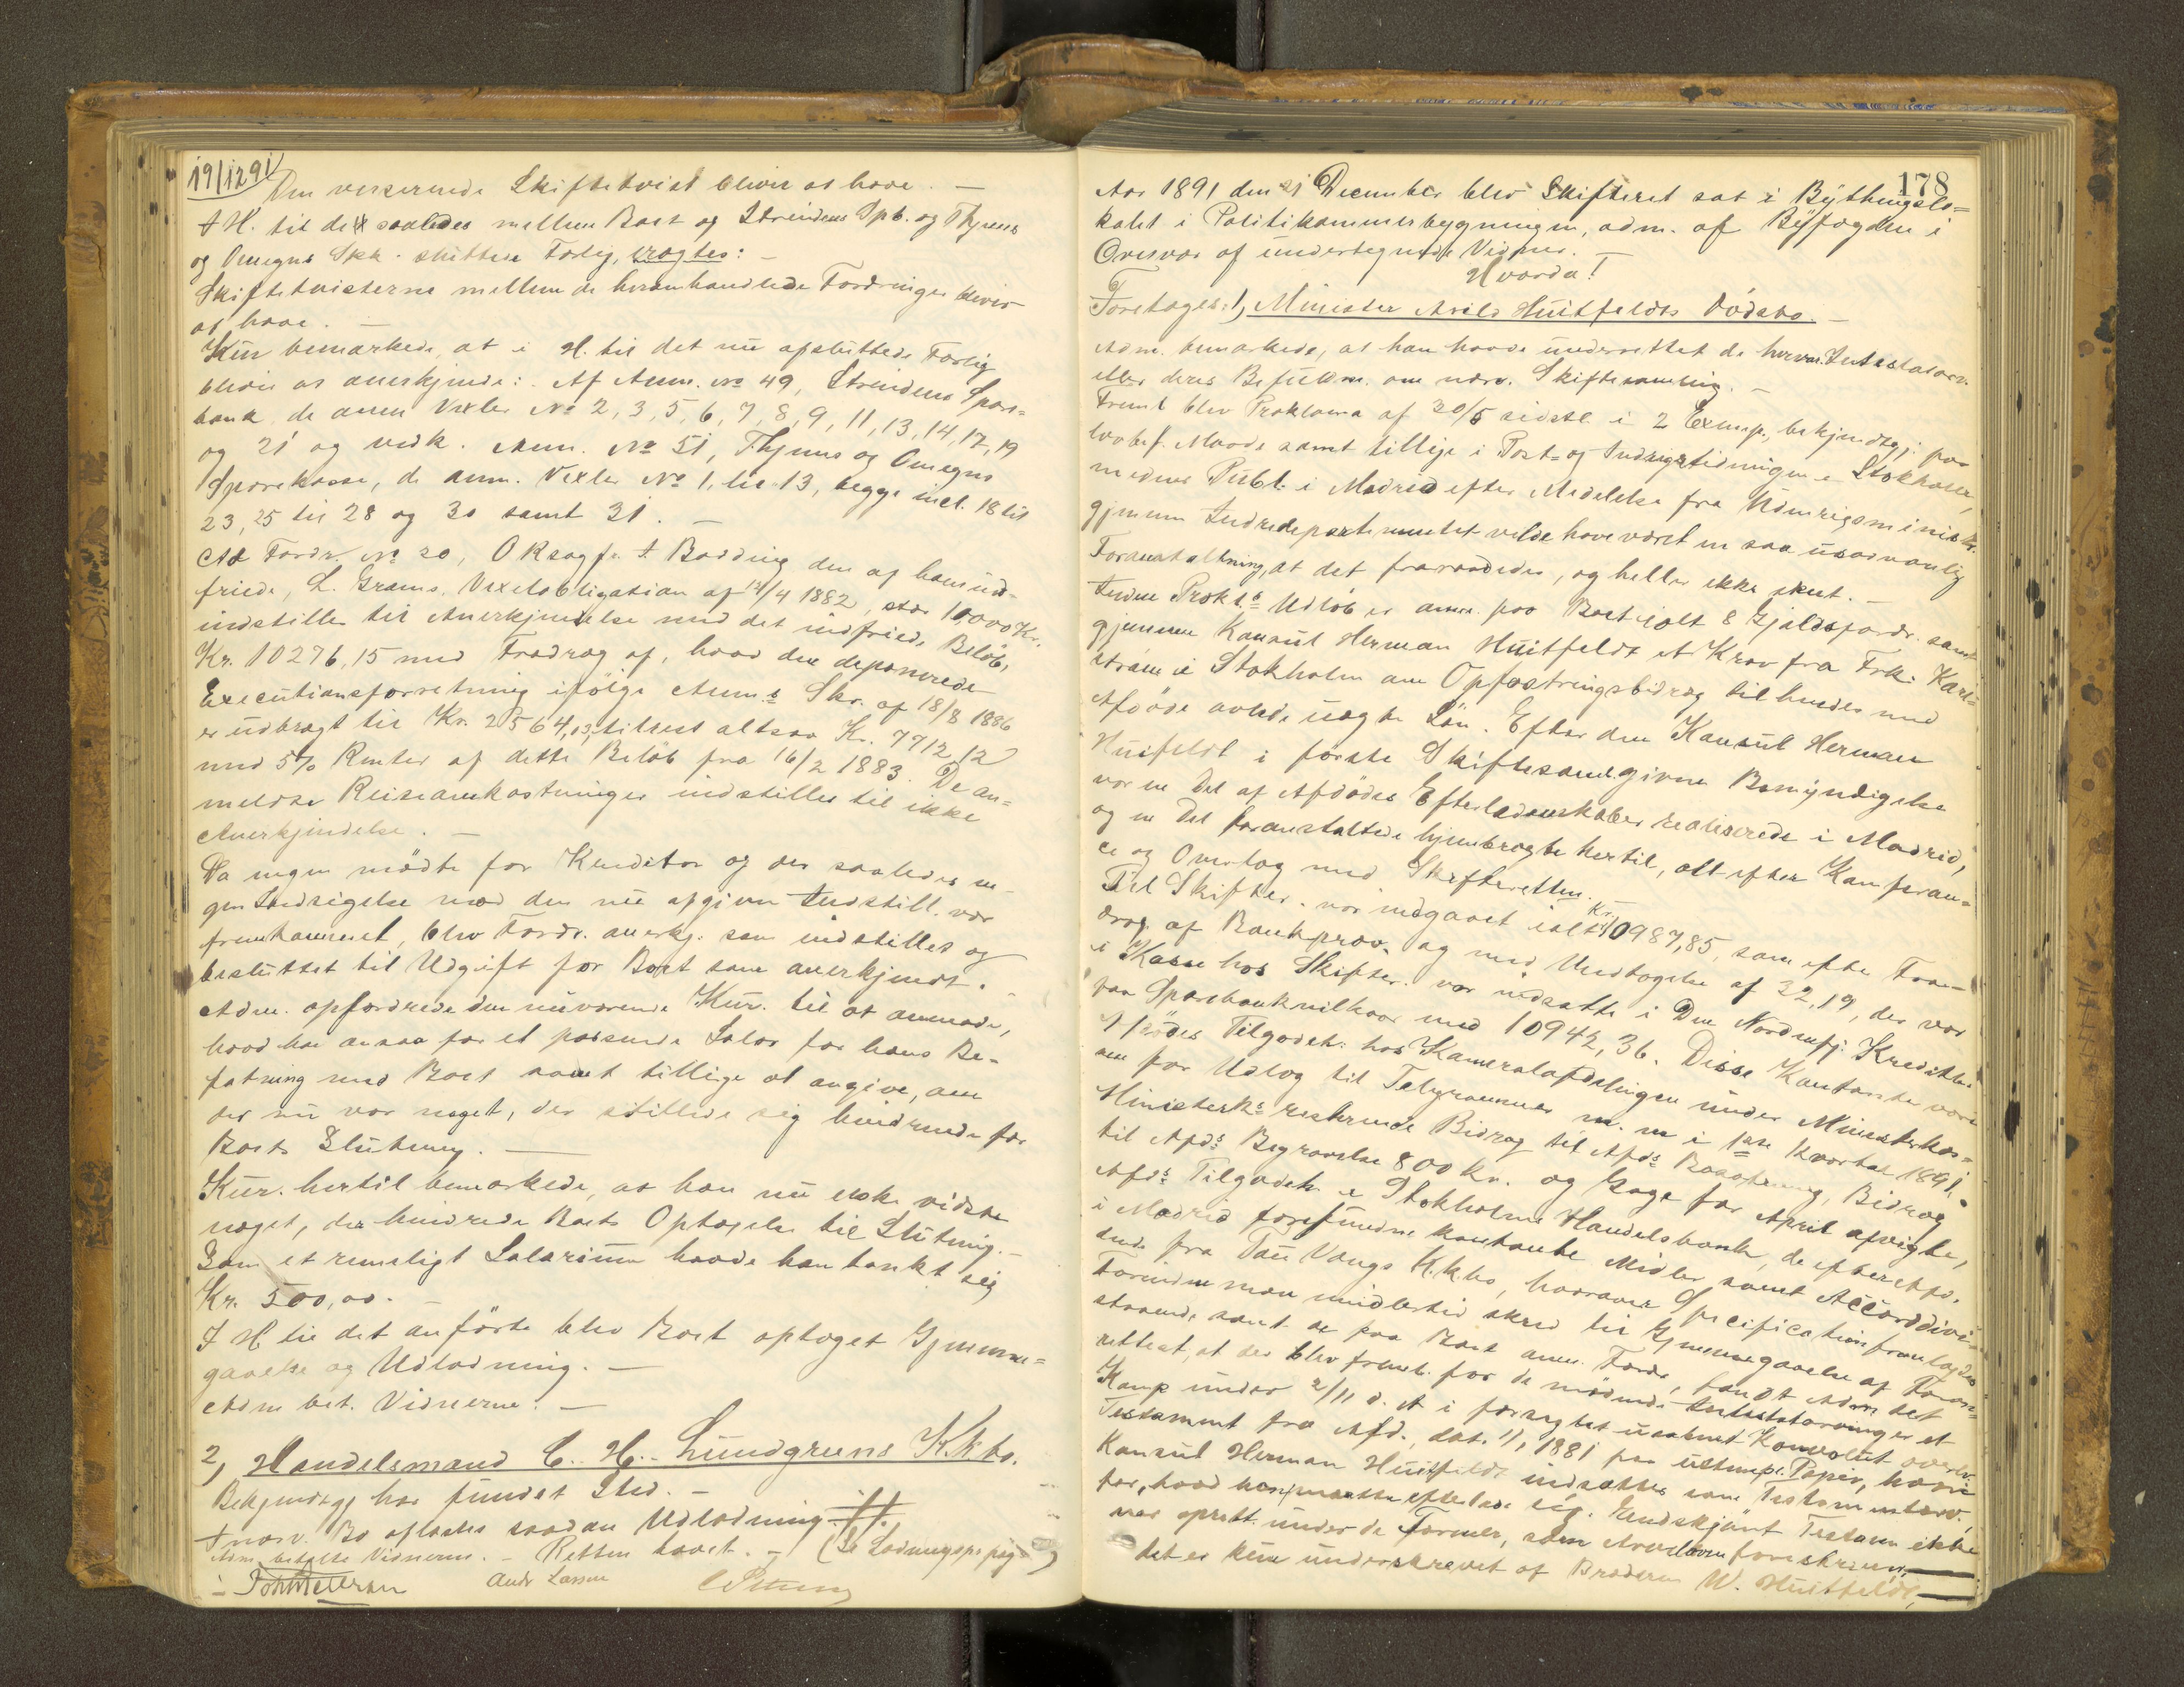 19/12 91
Den verserende Skiftetvist bliver at hæve. —
I H. til det saaledes mellem Boet og Strindens Spb. og Thynæs
og Omegns Spk. sluttede Forlig, eragtes: —
Skiftetvisterne mellem de herom handlede Fordringer bliver
at hæve. —
Kur bemærkede, at i H. til det nu afsluttede Forlig
bliver at anerkjende: Af Anm. No 49, Strindens Spare=
bank, de anm Vexler No 2, 3, 5, 6, 7, 8, 9, 11, 13, 14, 17, 19
og 21 og vedk. Anm. No 51, Thynæs og Omegns
Sparekasse, de anm. Vexler No 1, til 13, begge incl. 18 til
23, 25 til 28 og 30 samt 31. —
Ad Fordr. No 20, O Ksagf. I. Bødding den af ham ind-
friede, L. Grams, Vexelobligation af 12/4 1882, stor 10,000 Kr.
indstilles til Anerkjendelse med det indfriede Beløb,
Kr. 10276,15 med Fradrag af, hvad den deponerede
Executionsforretning ifölge Anm.s Skr. af 18/8 1886
er udbragt til Kr. 2564,03, tilrest altsaa Kr. 7712,12
med 5% Renter af dette Belöb fra 16/2 1883. De an=
meldte Reiseomkostninger indstilles til ikke
Anerkjendelse. —
Da ingen mödte for Kreditor og der saaledes in-
gen Indsigelse mod den nu afgivne Indstill. var
fremkommet, blev Fordr. anerkj. som indstillet og
besluttet til Udgift for Boet som anerkjendt. —
Adm. opfordrede den nuværende Kur. til at anmode,
hvad han ansaa for et passende Salær for hans Be-
fatning med Boet samt tillige at angive, om
der nu var noget, der stillede sig hindrende for
Boets Slutning. —
Kur. hertil bemærkede, at han nu ikke vidste
noget, der hindrede Boets Optagelse til Slutning. —
Som et rimeligt Salarium havde han tænkt sig
Kr. 500,00. —
I H til det anförte blev Boet optaget Gjennem=
gaaelse og Udlodning. —
Adm bet. Vidnerne. —
2, Handelsmand C. H. Lundgreens K.k.bo.
Bekjendtgj har fundet Sted. —
I nærv. Bo afsattes saadan Udlodning: #.
Adm. betalte Vidnerne. — Retten hævet. — (Se Lodningspr pag )
Andr Larsen
178
Aar 1891 den 21 December blev Skifteret sat i Bythingslo=
kalet i Politikammerbygningen, adm. af Byfogden i
Overvær af undertegnede Vidner. —
Hvorda!
Foretoges: 1, Minister Arild Huitfeldts Dødsbo. —
Adm. bemærkede, at han havde underrettet de herv. Intestatarv.
eller deres Befuldm. om nærv. Skiftesamling. —
Freml blev Proklama af 30/5 sidstl. i 2 Exemp., bekjendtgj. paa
lovbef. Maade samt tillige i Post- og Indrigestidningen i Stokholm,
medens Publ. i Madrid efter Meddelelse fra Udenrigsminist.
gjennem Indredepartementet vilde have været en saa usædvanlig
Foranstaltning, at det fraraadedes, og heller ikke skeet. —
Inden Prokl.s Udløb er anm. paa Boet ialt 8 Gjældsfordr. samt
gjennem Konsul Herman Huitfeldt et Krav fra Frk. Karl=
ström i Stokholm om Opfostringsbidrag til hendes med
Afdöde avlede uægte Sön. Efter den Konsul Herman
Huitfeldt i förste Skiftesaml givne Bemyndigelse
var en Del af Afdödes Efterladenskaber realiserede i Madrid,
og en Del foranstaltede hjembragte hertil, alt efter Konferan=
ce og Overlæg med Skifteretten.
Til Skifter. var indgaaet ialt Kr. 10987,85, som efter Fra=
drag af Bankprov. og med Undtagelse af 32,19, der var
i Kasse hos Skifter. var indsatte i Den Nordenfj. Kreditb.
paa Sparebankvilkaar med 10942,36. Disse Kontanter vare
Afdödes Tilgodeh. hos Kameralafdelingen under Ministerkas=
sen for Udlæg til Telegrammer m. m i 1ste Kvartal 1891,
Ministerk.s resterende Bidrag til Afd.s Bosætning, Bidrag
til Afd.s Begravelse 800 Kr. og Gage for April afvigte,
Afd.s Tilgodeh i Stokholms Handelsbank, de efter Afd.
i Madrid forefundne kontante Midler samt Accorddivi-
dende fra Vangs K.k.bo, hvorover Specification fremlagdes
Forinden man imidlertid skred til Gjennemgaaelse af Foran=
staaende samt de paa Boet anm. Fordr., fandt Adm det
rettest, at der blev fremb. for de mödende Intestatarvinger et
Kamp under 2/11 d. A i forseglet uaabnet Konvolut overl.
Testament fra Afd., dat. 1/1 1881 paa ustempl. Papir, hvori
Konsul Herman Huitfeldt indsættes som Testamentsarv.
for, hvad han maatte efterlade sig. Endskjønt Testam. ikke
var oprett. under de Former, som Arveloven foreskriver,
det er kun underskrevet af Broderen W. Huitfeldt, —